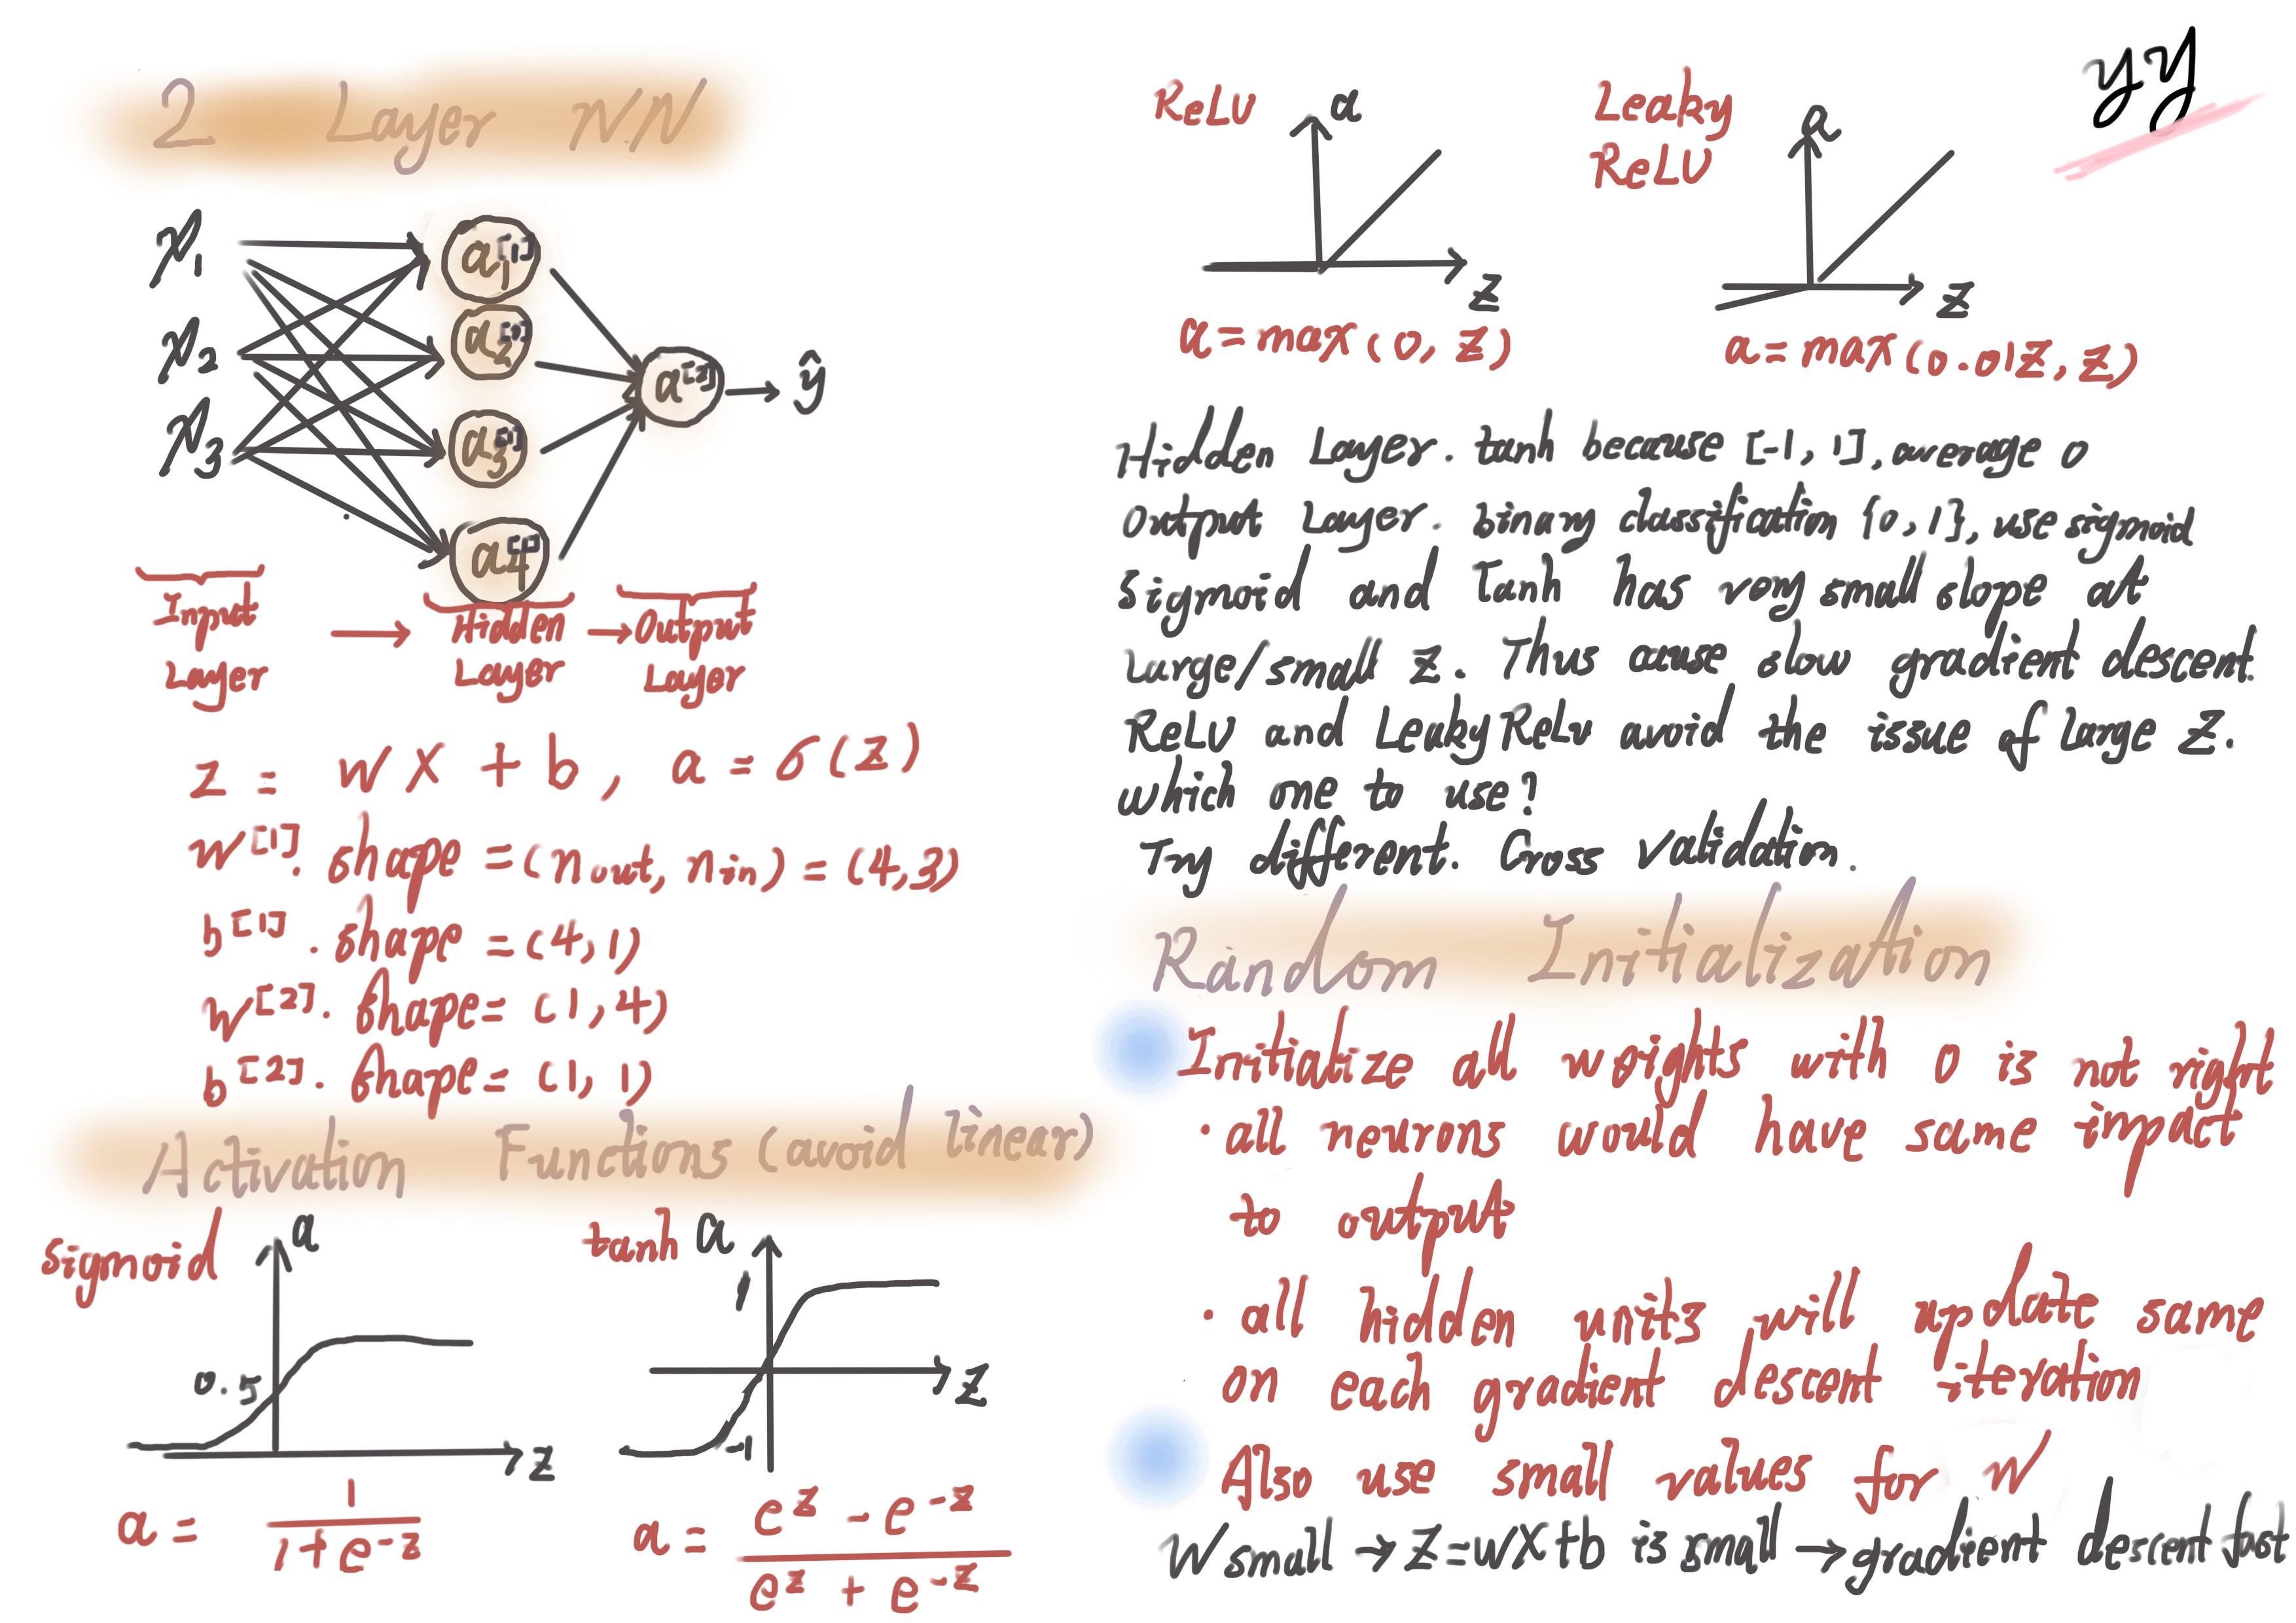 2 Layer NN
x1
x2
x3
a1[1]
a2[1]
a3[1]
a4[1]
a[2]
ŷ
Input Layer → Hidden Layer → Output Layer
z = wX + b, a = σ(z)
w[1]. shape = (n out, n in) = (4,3)
b[1]. shape = (4,1)
w[2]. shape = (1,4)
b[2]. shape = (1,1)
Activation Functions (avoid linear)
sigmoid
a
0.5
z
a = 1 / (1+e^-z)
tanh
a
1
-1
z
a = (e^z - e^-z) / (e^z + e^-z)
ReLU
a
z
a = max(0, z)
Leaky
ReLU
a
z
a = max(0.01z, z)
yy
Hidden Layer. tanh because [-1, 1], average 0
Output Layer. binary classification {0,1}, use sigmoid
Sigmoid and Tanh has very small slope at
large/small z. Thus cause slow gradient descent.
ReLU and Leaky ReLu avoid the issue of large z.
which one to use?
Try different. Cross Validation.
Random Initialization
Initialize all weights with 0 is not right
· all neurons would have same impact
to output
· all hidden units will update same
on each gradient descent iteration
Also use small values for W
W small → Z=wX+b is small → gradient descent fast